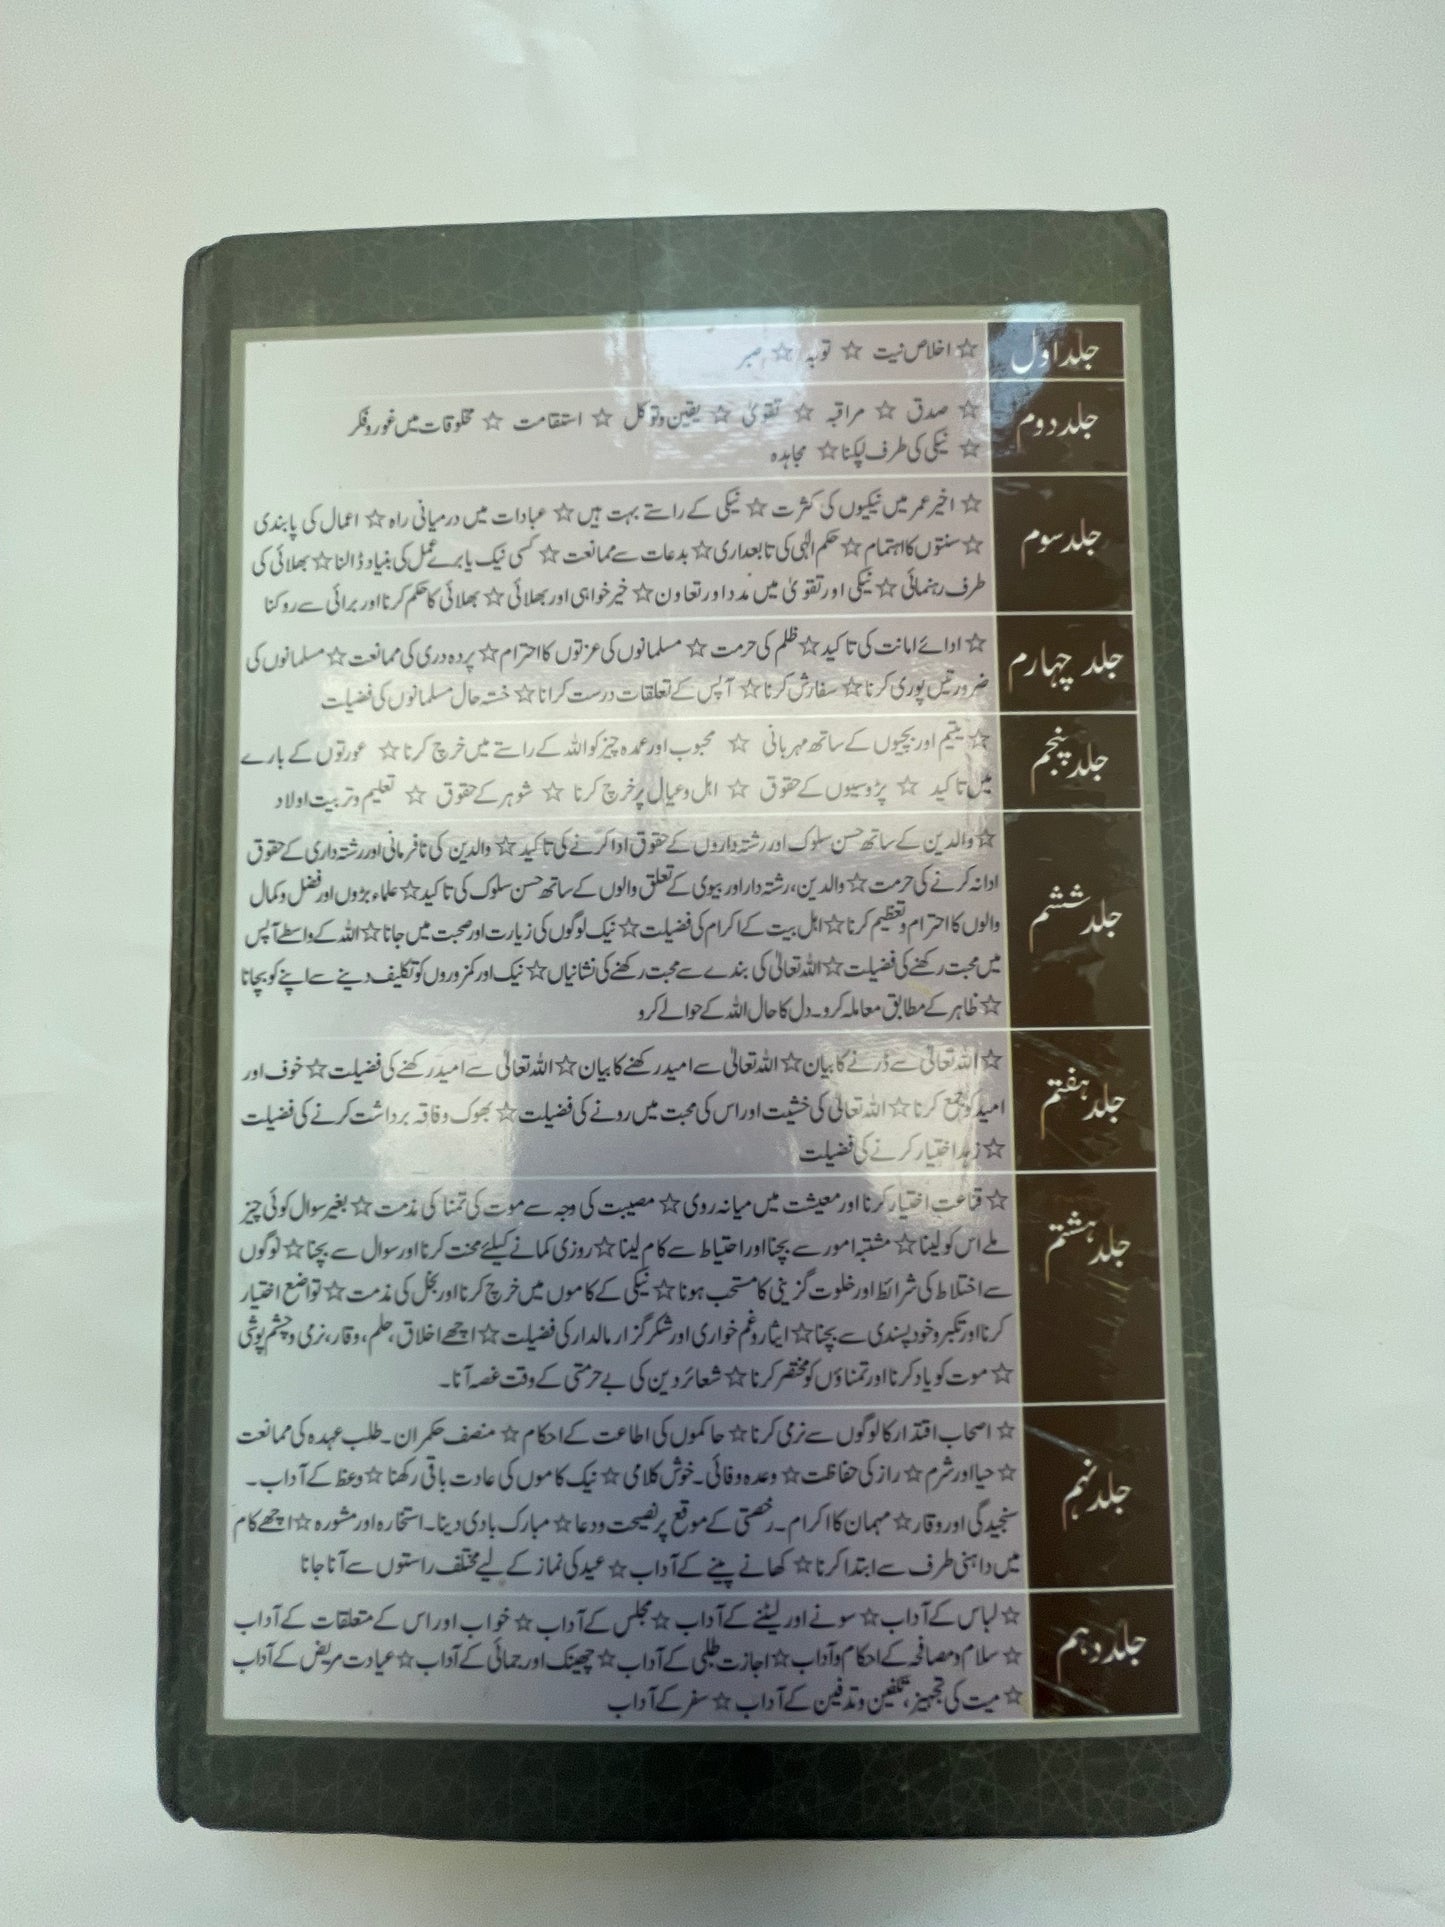 جلد اول
☆ اخلاص نیت ☆ توبہ ☆ صبر
جلد دوم
☆ صدق ☆ مراقبہ ☆ تقویٰ ☆ یقین و توکل ☆ استقامت ☆ مخلوقات میں غور و فکر
☆ نیکی کی طرف لپکنا ☆ مجاہدہ
جلد سوم
☆ اخیر عمر میں نیکیوں کی کثرت ☆ نیکی کے راستے بہت ہیں ☆ عبادات میں درمیانی راہ ☆ اعمال کی پابندی
☆ سنتوں کا اہتمام ☆ حکم الٰہی کی تابعداری ☆ بدعات سے ممانعت ☆ کسی نیک یا برے عمل کی بنیاد ڈالنا ☆ بھلائی کی
طرف رہنمائی ☆ نیکی اور تقویٰ میں مدد اور تعاون ☆ خیر خواہی اور بھلائی ☆ بھلائی کا حکم کرنا اور برائی سے روکنا
جلد چہارم
☆ ادائے امانت کی تاکید ☆ ظلم کی حرمت ☆ مسلمانوں کی عزتوں کا احترام ☆ پردہ دری کی ممانعت ☆ مسلمانوں کی
ضرورتیں پوری کرنا ☆ سفارش کرنا ☆ آپس کے تعلقات درست کرانا ☆ خستہ حال مسلمانوں کی فضیلت
جلد پنجم
☆ یتیم اور بچیوں کے ساتھ مہربانی ☆ محبوب اور عمدہ چیز کو اللہ کے راستے میں خرچ کرنا ☆ عورتوں کے بارے
میں تاکید ☆ پڑوسیوں کے حقوق ☆ اہل و عیال پر خرچ کرنا ☆ شوہر کے حقوق ☆ تعلیم و تربیت اولاد
جلد ششم
☆ والدین کے ساتھ حسن سلوک اور رشتہ داروں کے حقوق ادا کرنے کی تاکید ☆ والدین کی نافرمانی اور رشتہ داری کے حقوق
ادا نہ کرنے کی حرمت ☆ والدین، رشتہ دار اور بیوی کے تعلق والوں کے ساتھ حسن سلوک کی تاکید ☆ علماء بڑوں اور فضل و کمال
والوں کا احترام و تعظیم کرنا ☆ اہل بیت کے اکرام کی فضیلت ☆ نیک لوگوں کی زیارت اور صحبت میں جانا ☆ اللہ کے واسطے آپس
میں محبت رکھنے کی فضیلت ☆ اللہ تعالیٰ کی بندے سے محبت رکھنے کی نشانیاں ☆ نیک اور کمزوروں کو تکلیف دینے سے اپنے کو بچانا
☆ ظاہر کے مطابق معاملہ کرو۔ دل کا حال اللہ کے حوالے کرو
جلد ہفتم
☆ اللہ تعالیٰ سے ڈرنے کا بیان ☆ اللہ تعالیٰ سے امید رکھنے کا بیان ☆ اللہ تعالیٰ سے امید رکھنے کی فضیلت ☆ خوف اور
امید کو جمع کرنا ☆ اللہ تعالیٰ کی خشیت اور اس کی محبت میں رونے کی فضیلت ☆ بھوک و فاقہ برداشت کرنے کی فضیلت
☆ زہد اختیار کرنے کی فضیلت
جلد ہشتم
☆ قناعت اختیار کرنا اور معیشت میں میانہ روی ☆ مصیبت کی وجہ سے موت کی تمنا کی مذمت ☆ بغیر سوال کوئی چیز
ملے اس کو لینا ☆ مشتبہ امور سے بچنا اور احتیاط سے کام لینا ☆ روزی کمانے کیلئے محنت کرنا اور سوال سے بچنا ☆ لوگوں
سے اختلاط کی شرائط اور خلوت گزینی کا مستحب ہونا ☆ نیکی کے کاموں میں خرچ کرنا اور بخل کی مذمت ☆ تواضع اختیار
کرنا اور تکبر و خود پسندی سے بچنا ☆ ایثار و غم خواری اور شکر گزار مالدار کی فضیلت ☆ اچھے اخلاق، حلم، وقار، نرمی و چشم پوشی
☆ موت کو یاد کرنا اور تمناؤں کو مختصر کرنا ☆ شعائر دین کی بے حرمتی کے وقت غصہ آنا۔
جلد نہم
☆ اصحاب اقتدار کا لوگوں سے نرمی کرنا ☆ حاکموں کی اطاعت کے احکام ☆ منصف حکمران۔ طلب عہدہ کی ممانعت
☆ حیا اور شرم ☆ راز کی حفاظت ☆ وعدہ وفائی۔ خوش کلامی ☆ نیک کاموں کی عادت باقی رکھنا ☆ وعظ کے آداب۔
سنجیدگی اور وقار ☆ مہمان کا اکرام۔ رخصتی کے موقع پر نصیحت و دعا ☆ مبارک بادی دینا۔ استخارہ اور مشورہ ☆ اچھے کام
میں داہنی طرف سے ابتدا کرنا ☆ کھانے پینے کے آداب ☆ عید کی نماز کے لیے مختلف راستوں سے آنا جانا
جلد دہم
☆ لباس کے آداب ☆ سونے اور لیٹنے کے آداب ☆ مجلس کے آداب ☆ خواب اور اس کے متعلقات کے آداب
☆ سلام و مصافحہ کے احکام و آداب ☆ اجازت طلبی کے آداب ☆ چھینک اور جمائی کے آداب ☆ عیادت مریض کے آداب
☆ میت کی تجہیز، تکفین و تدفین کے آداب ☆ سفر کے آداب